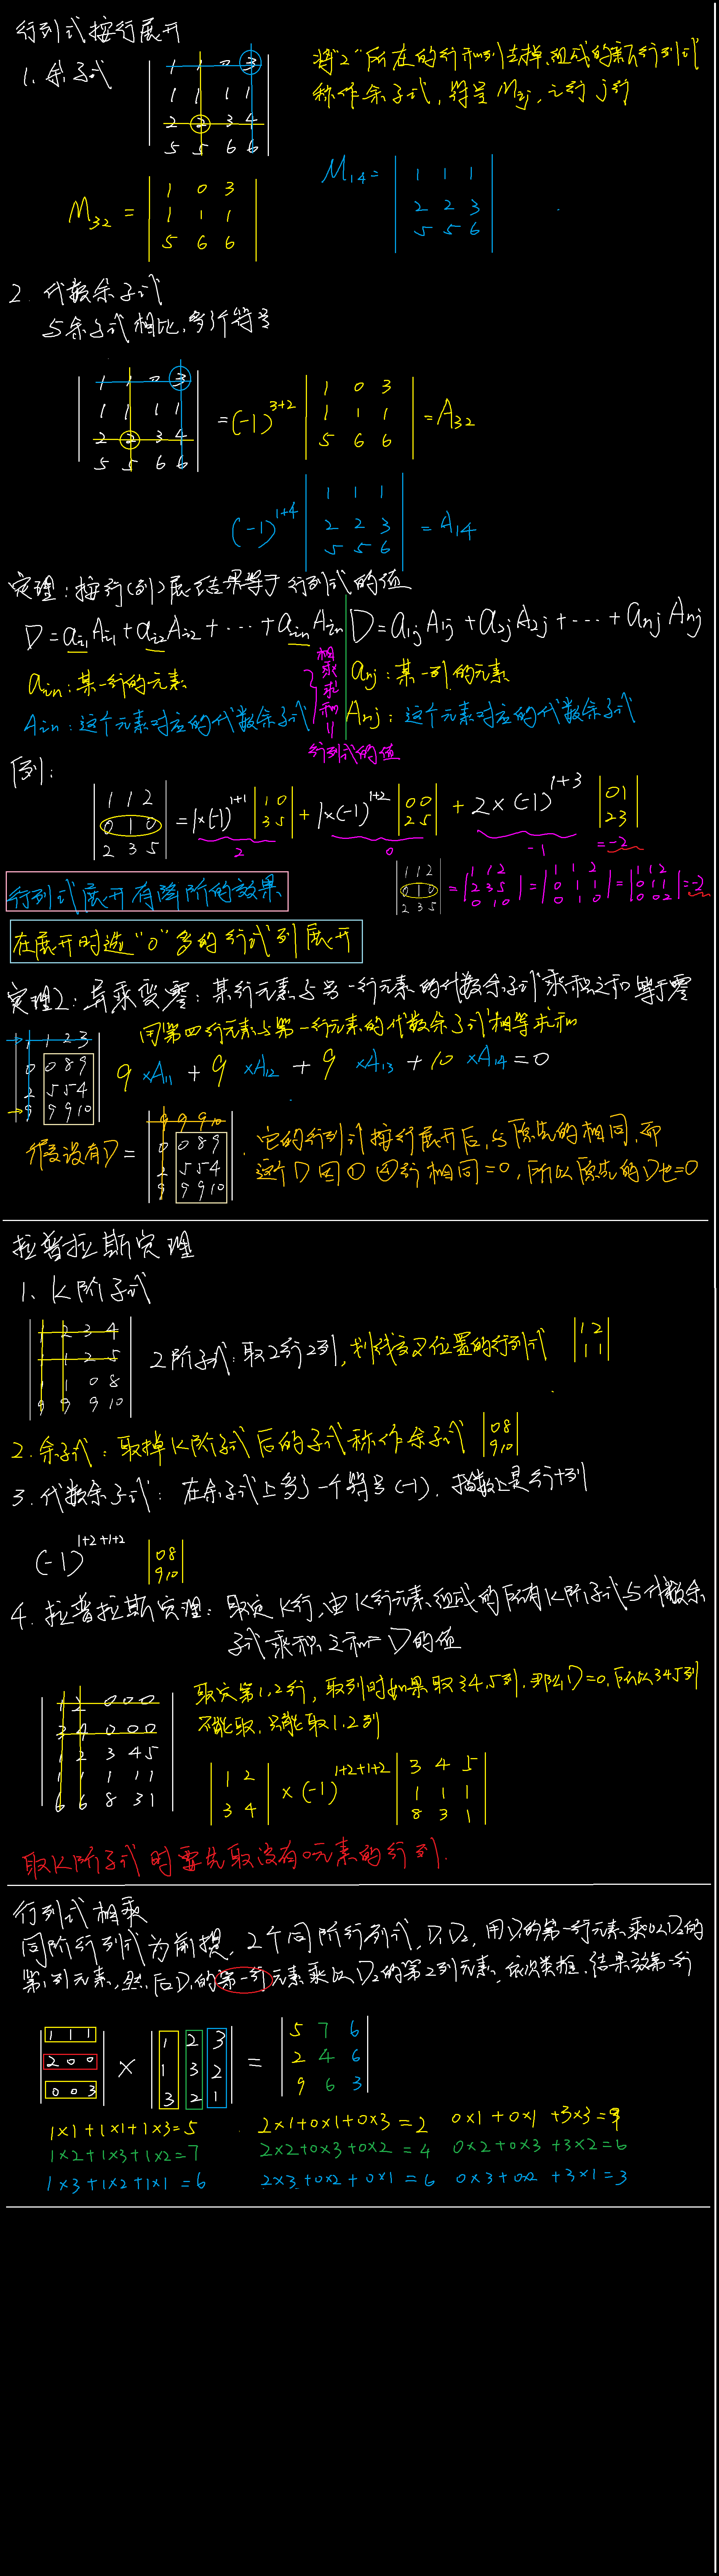 行列式按行展开
1、余子式
1 1 0 3
1 1 1 1
2 2 3 4
5 5 6 6
将“2”所在的行和列去掉,组成的新行列式
称作余子式,符号Mij,i行j列
M32 =
1 0 3
1 1 1
5 6 6
M14 =
1 1 1
2 2 3
5 5 6
2. 代数余子式
与余子式相比,多个符号
1 1 0 3
1 1 1 1
2 2 3 4
5 5 6 6
= (-1)^3+2
1 0 3
1 1 1
5 6 6
= A32
(-1)^1+4
1 1 1
2 2 3
5 5 6
= A14
定理:按行(列)展结果等于行列式的值
D = ai1 Ai1 + ai2 Ai2 + … + ain Ain
D = a1j A1j + a2j A2j + … + anj Anj
ain:某一行的元素
Ain:这个元素对应的代数余子式
相乘求和
=
行列式的值
anj:某一列的元素
Anj:这个元素对应的代数余子式
例:
1 1 2
0 1 0
2 3 5
= 1×(-1)^1+1 |1 0 3 5| + 1×(-1)^1+2 |0 0 2 5| + 2×(-1)^1+3 |0 1 2 3|
2 0 -1 =-2
行列式展开有降阶的效果
1 1 2
0 1 0
2 3 5
=
1 1 2
2 3 5
0 1 0
=
1 1 2
0 1 1
0 1 0
=
1 1 2
0 1 1
0 0 2
=-2
在展开时选“0”多的行或列展开
定理2:异乘变零:某行元素与另一行元素的代数余子式乘积之和等于零
1 1 2 3
0 0 8 9
2 5 5 4
9 9 9 10
用第四行元素与第一行元素的代数余子式相等求和
9 ×A11 + 9 ×A12 + 9 ×A13 + 10 ×A14 = 0
假设有D =
9 9 9 10
0 0 8 9
2 5 5 4
9 9 9 10
,它的行列式按行展开后,与原先的相同,而
这个D因①④行相同=0,所以原先的D也=0
拉普拉斯定理
1、K阶子式
1 2 3 4
1 1 2 5
1 1 0 8
9 9 9 10
2阶子式:取2行2列,划线交叉位置的行列式
1 2
1 1
2. 余子式:取掉K阶子式后的子式称作余子式
0 8
9 10
3. 代数余子式:在余子式上多了一个符号(-1),指数是行+列
(-1)^1+2+1+2
0 8
9 10
4. 拉普拉斯定理:取定K行,由K行元素组成的所有K阶子式与代数余
子式乘积之和=D的值
1 2 0 0 0
3 4 0 0 0
1 2 3 4 5
1 1 1 1 1
6 6 8 3 1
取定第1,2行,取列时如果取3 4,5列,那么D=0,所以345列
不能取,只能取1,2列
1 2
3 4
× (-1)^1+2+1+2
3 4 5
1 1 1
8 3 1
取K阶子式时要先取没有0元素的行列.
行列式相乘
同阶行列式为前提,2个同阶行列式,D1D2,用D1的第一行元素乘以D2的
第1列元素,然后D1的第一行元素乘以D2的第2列元素,依次类推.结果放第一行
1 1 1
2 0 0
0 0 3
×
1 2 3
1 3 2
3 2 1
=
5 7 6
2 4 6
9 6 3
1×1+1×1+1×3=5 2×1+0×1+0×3=2 0×1+0×1+3×3=9
1×2+1×3+1×2=7 2×2+0×3+0×2=4 0×2+0×3+3×2=6
1×3+1×2+1×1=6 2×3+0×2+0×1=6 0×3+0×2+3×1=3